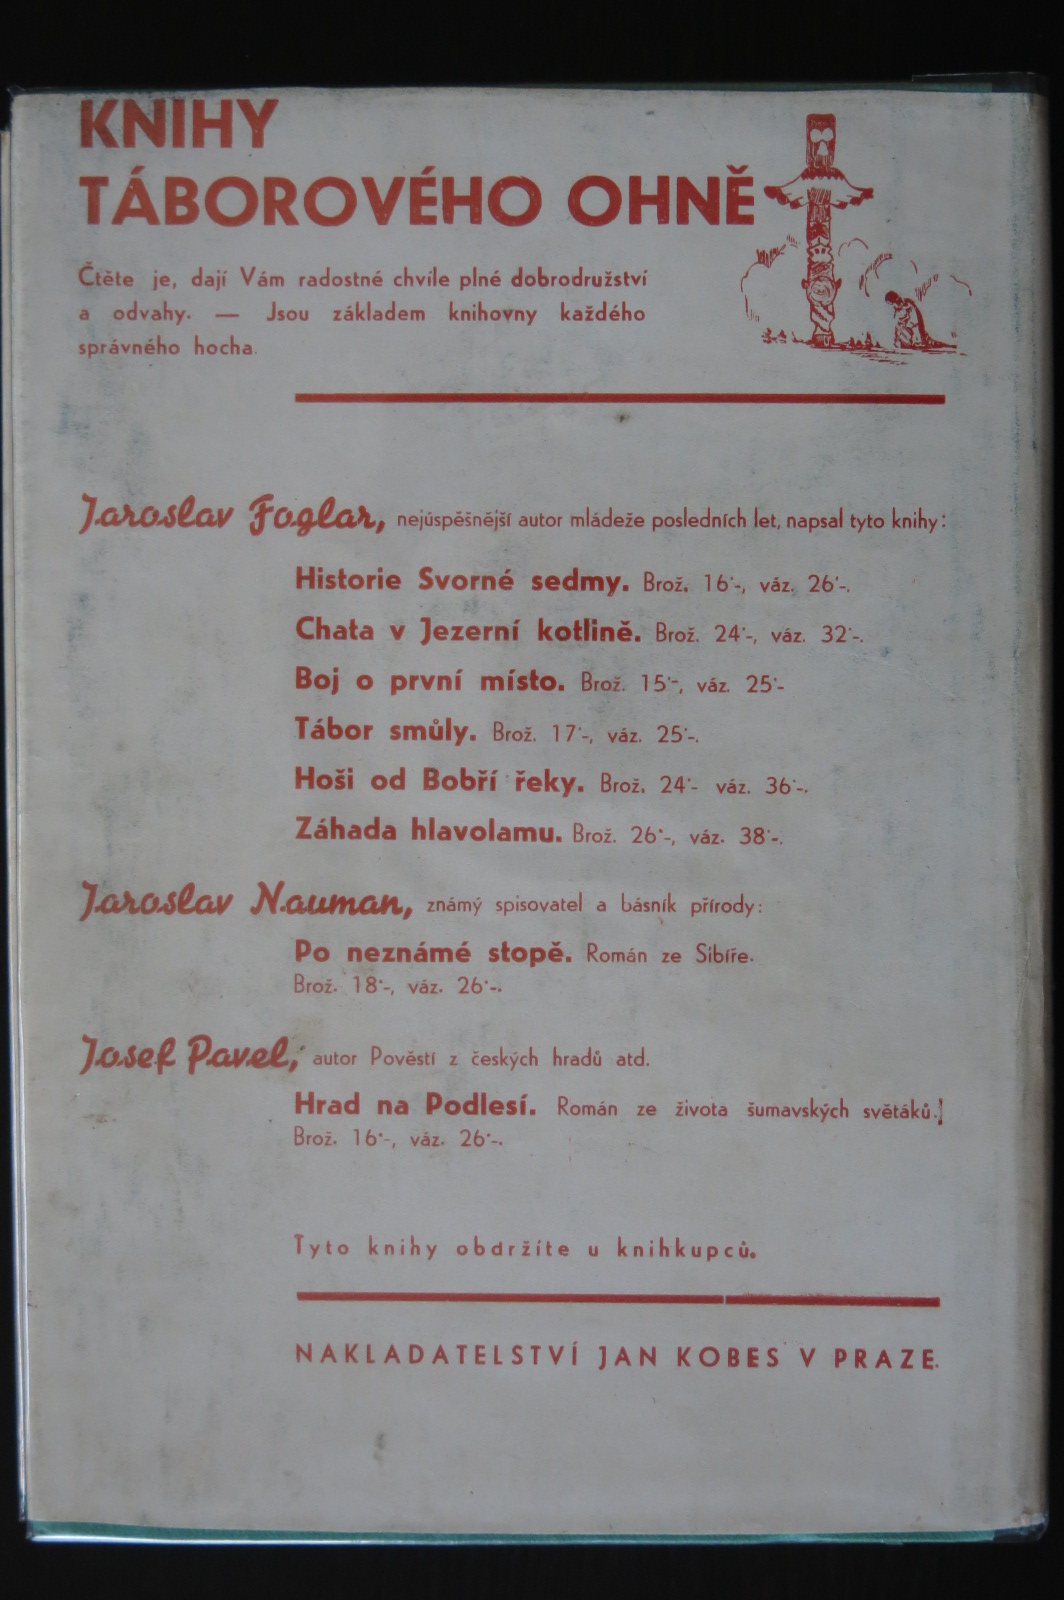 KNIHY
TÁBOROVÉHO OHNĚ
Čtěte je, dají Vám radostné chvíle plné dobrodružství
a odvahy. — Jsou základem knihovny každého
správného hocha.
Jaroslav Foglar, nejúspěšnější autor mládeže posledních let, napsal tyto knihy:
Historie Svorné sedmy. Brož. 16·-, váz. 26·-.
Chata v Jezerní kotlině. Brož. 24·-, váz. 32·-.
Boj o první místo. Brož. 15·-, váz. 25·-
Tábor smůly. Brož. 17·-, váz. 25·-.
Hoši od Bobří řeky. Brož. 24·- váz. 36·-.
Záhada hlavolamu. Brož. 26·-, váz. 38·-.
Jaroslav Nauman, známý spisovatel a básník přírody:
Po neznámé stopě. Román ze Sibíře.
Brož. 18·-, váz. 26·-.
Josef Pavel, autor Pověstí z českých hradů atd.
Hrad na Podlesí. Román ze života šumavských světáků.
Brož. 16·-, váz. 26·-.
Tyto knihy obdržíte u knihkupců.
NAKLADATELSTVÍ JAN KOBES V PRAZE.